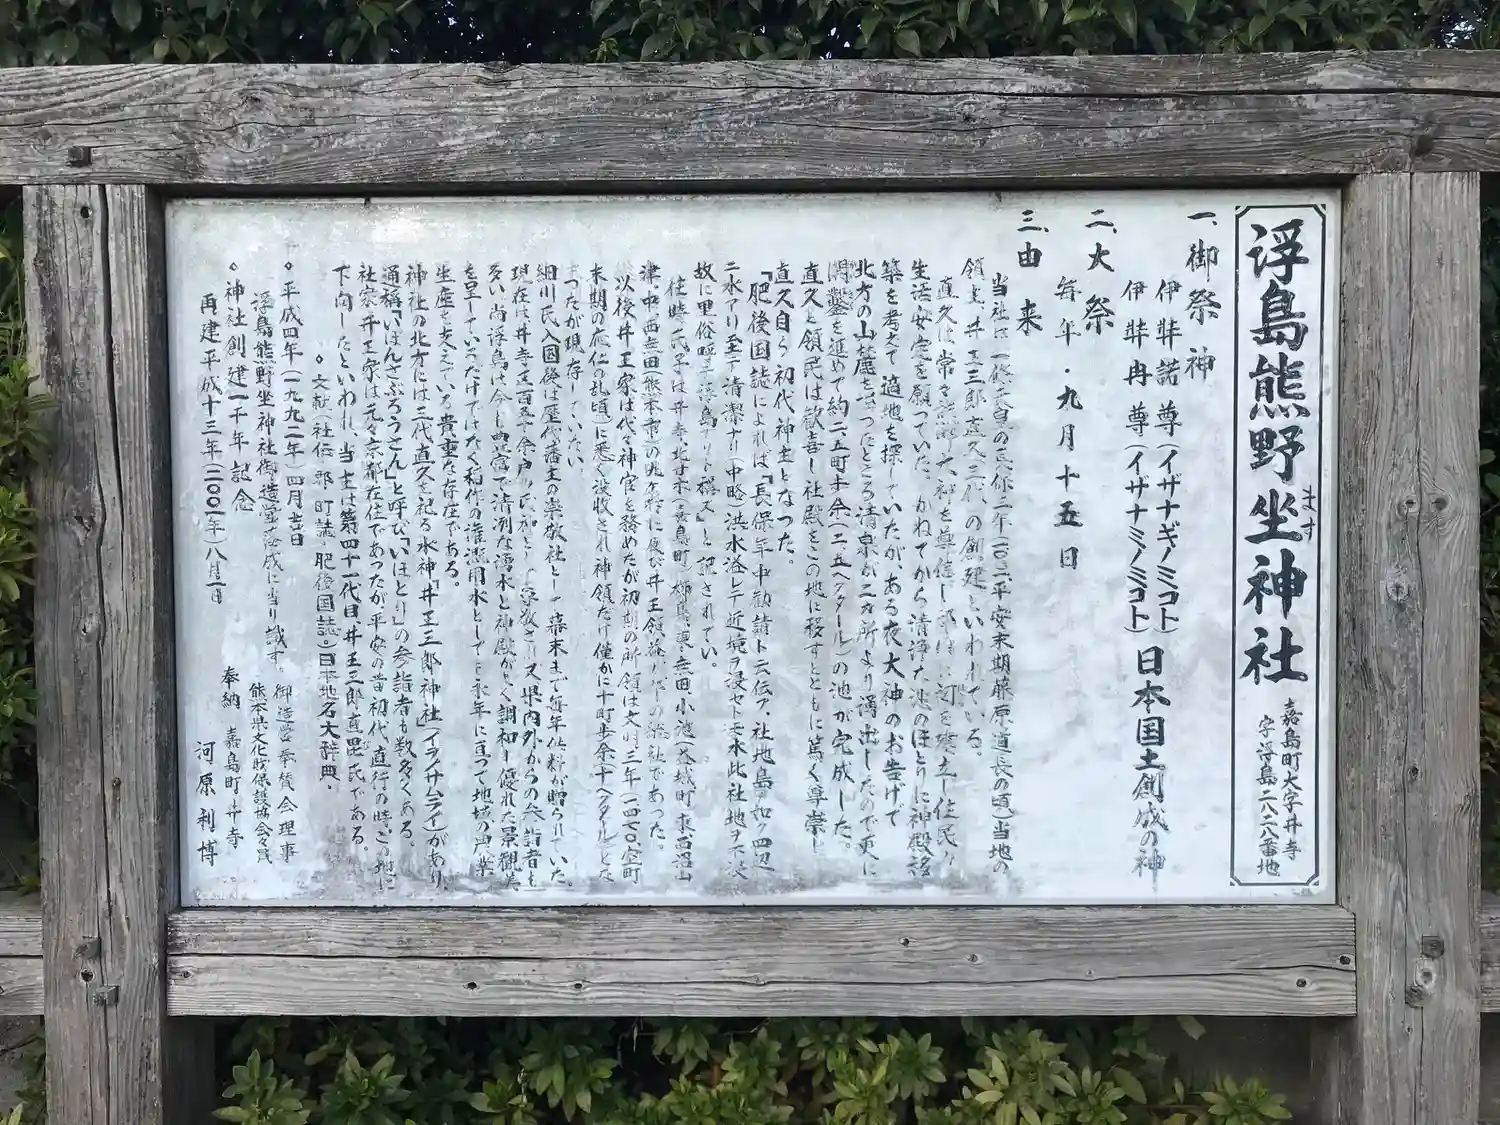 浮島熊野坐神社
ます
嘉島町大字井寺
字浮島二八二八番地
一、御祭神
伊弉諾尊(イザナギノミコト)
伊弉冉尊(イザナミノミコト)日本国土創成の神
二、大祭
毎年・九月十五日
三、由来
当社は一條天皇の 平安末期藤原道長の頃)当地の
領主、井王三郎直久三代、の創建といわれている。
直久は常々熊野大神を尊信し 住民の
生活安定を願っていた。かねてから清浄な池のほとりに神殿移
築を考えて適地を探していたが、ある夜大神のお告げで
北方の山麓を うったところ清泉が二カ所より湧出したので更に
開鑿を進めて約二、五町歩余(二、五ヘクタール)の池が完成した。
直久と領民は歓喜し社殿をこの地に移すとともに篤く尊崇し
直久自ら初代神主となった。
『肥後国誌によれば「長保年中勧請ト云伝フ、社地島ノ如ク四辺
ニ水アリ至テ清潔ナリ(中略)洪水溢レテ近境ヲ浸セトモ水此社地ヲ不浸
故に里俗呼テ浮島ナリト称ス」と記されてい。
往時、氏子は井寺、北甘木(嘉島町)櫛島、 無田、小池(益城町)東西沼山
津、中西無田(熊本市)の九ヶ村に及び井王領 の総社であった。
以後井王家は代々神官を務めたが初期の所領は文明三年一四七〇、空町
末期の応仁の乱頃)に悉く没収され神領だけ僅かに十町歩余十ヘクタール)とな
ったが現存していない
細川氏入国後は歴代藩主の崇敬社として幕末まで毎年 料が贈られていた。
現在は井寺 百五十余戸の氏神として崇敬され又県内外からの参詣者も
多い、尚浮島は今も豊富で清冽な湧水と神殿がよく調和し優れた景観美
を呈しているだけではなく稲作の灌漑用水としても永年に亘って地域の農業
生産を支えている貴重な存在である。
神社の北方には三代直久を祀る水神「井王三郎神社」(イヲノサムライ)があり、
通称「いぼんさぶろうさん」と呼び「いぼとり」の参詣者も数多くある。
社家井王家は元々京都在住であったが平安の昔初代、直行の時、この地に
下向したといわれ、当主は第四十一代目、井王三郎直毘氏である。
◦文献(社伝・郡、町誌・肥後国誌・)日本地名大辞典・
◦平成四年(一九九二年)四月吉日
浮島熊野坐神社御造営落成に当り誠す。
御造営奉賛会理事
熊本県文化財保護協会々員
◦神社創建一千年記念
奉納 嘉島町井寺
再建平成十三年(二〇〇一年)八月一日
河原利博